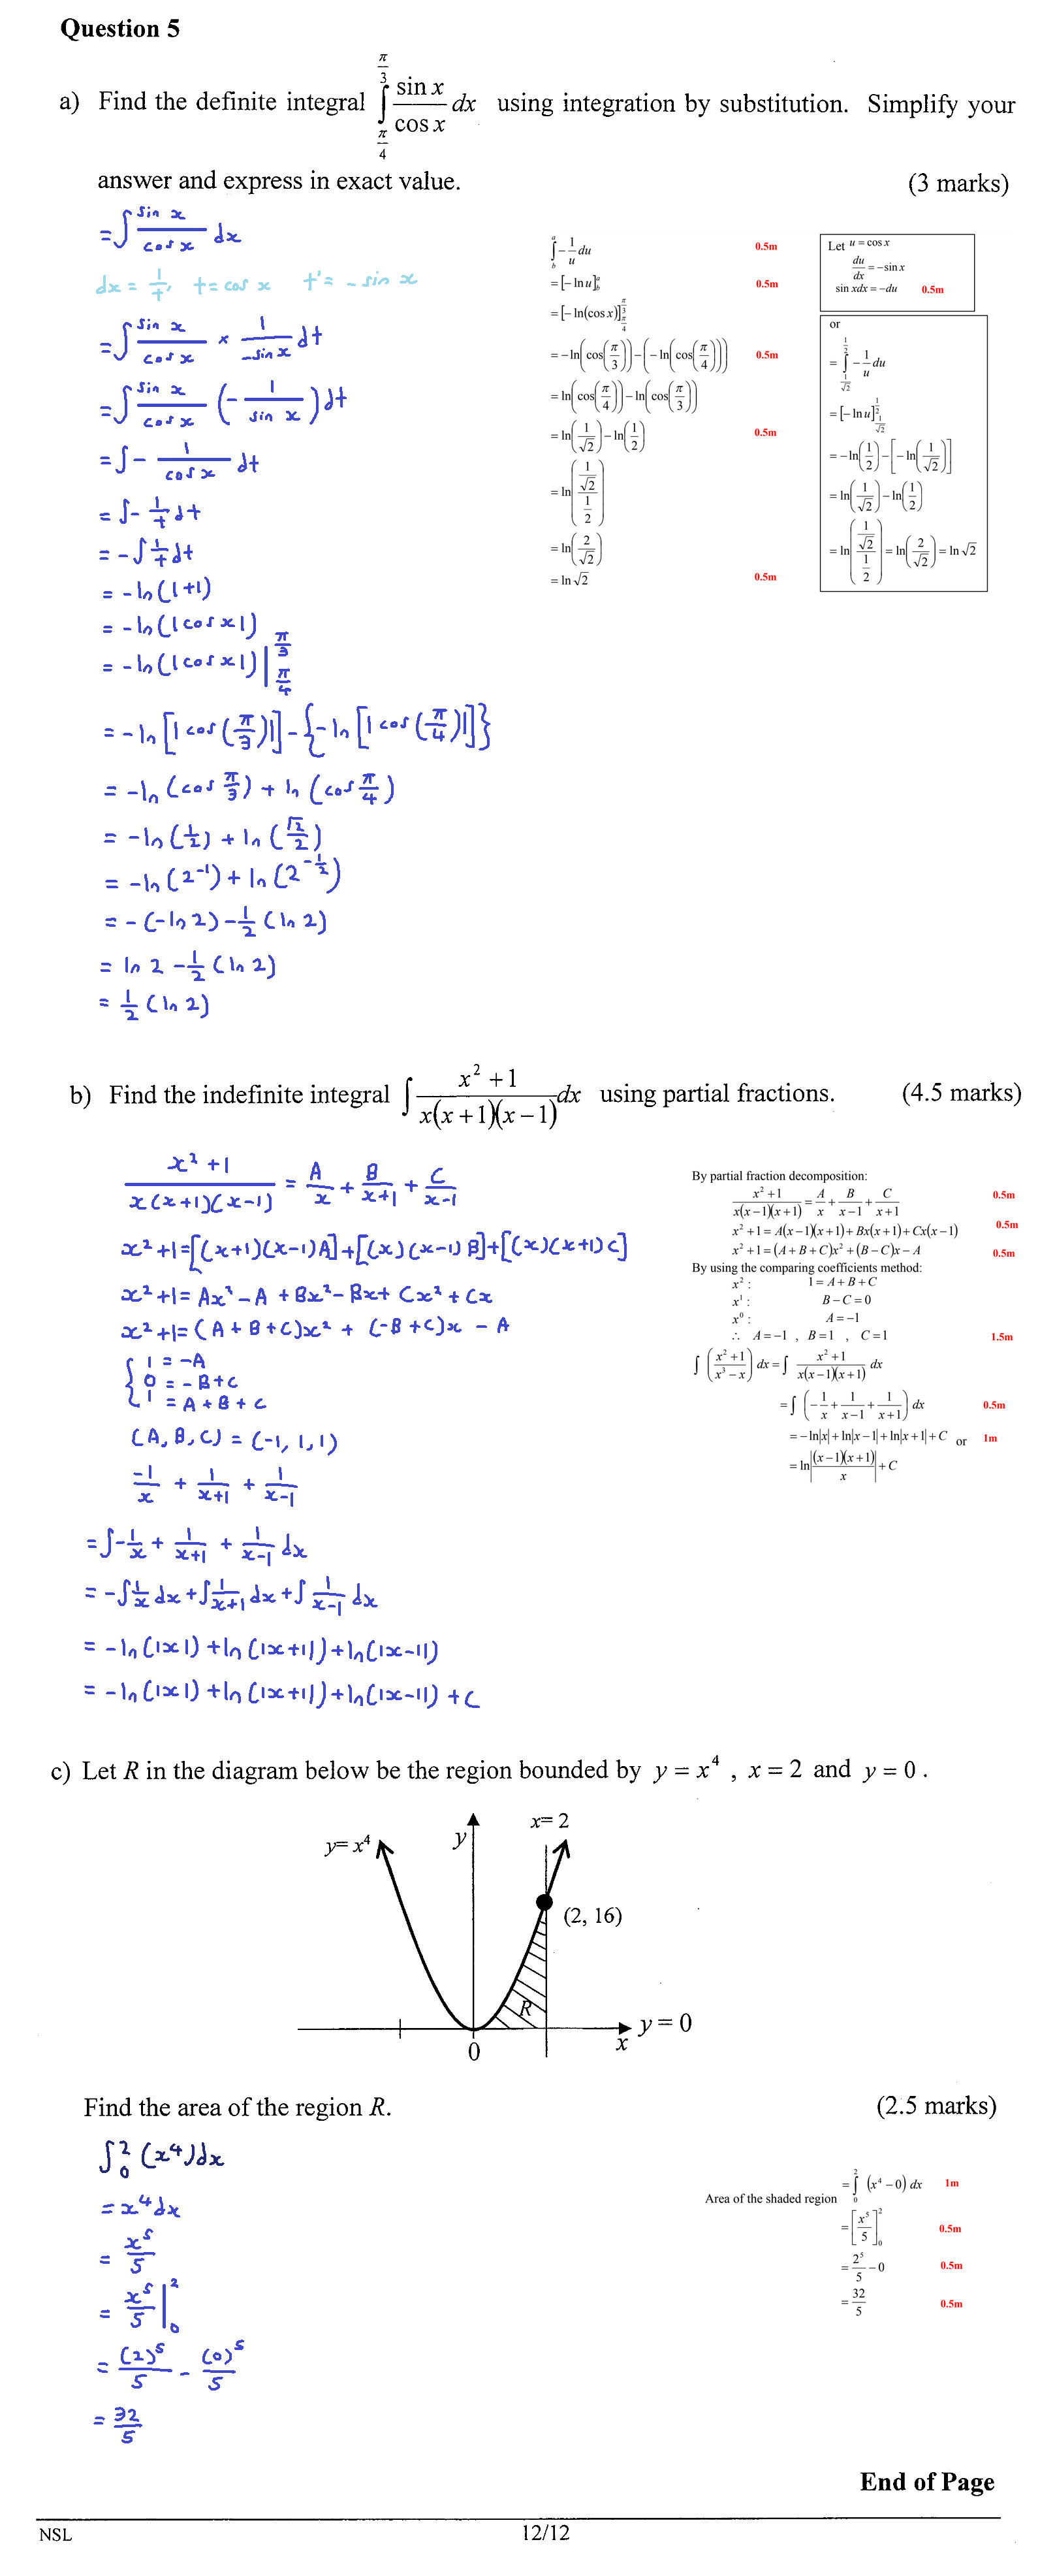 Question 5
a) Find the definite integral ∫_{π/4}^{π/3} sin x / cos x dx using integration by substitution. Simplify your
answer and express in exact value. (3 marks)
= ∫ sin x / cos x dx
dx = 1/t' t = cos x t' = - sin x
= ∫ sin x / cos x × 1 / -sin x dt
= ∫ sin x / cos x (- 1 / sin x) dt
= ∫ - 1 / cos x dt
= ∫ - 1/t dt
= - ∫ 1/t dt
= -ln(|t|)
= -ln(|cos x|)
= -ln(|cos x|) |_{π/4}^{π/3}
= -ln[|cos(π/3)|] - {-ln[|cos(π/4)|]}
= -ln(cos π/3) + ln(cos π/4)
= -ln(1/2) + ln(√2/2)
= -ln(2^-1) + ln(2^-1/2)
= -(-ln 2) - 1/2 (ln 2)
= ln 2 - 1/2 (ln 2)
= 1/2 (ln 2)
∫_b^a - 1/u du 0.5m
= [- ln u]_b^a 0.5m
= [- ln(cos x)]_{π/4}^{π/3}
= - ln(cos(π/3)) - (- ln(cos(π/4))) 0.5m
= ln(cos(π/4)) - ln(cos(π/3))
= ln(1/√2) - ln(1/2) 0.5m
= ln((1/√2) / (1/2))
= ln(2/√2)
= ln √2 0.5m
Let u = cos x
du/dx = - sin x
sin xdx = -du 0.5m
or
= ∫_{1/√2}^{1/2} - 1/u du
= [- ln u]_{1/√2}^{1/2}
= - ln(1/2) - [- ln(1/√2)]
= ln(1/√2) - ln(1/2)
= ln((1/√2) / (1/2)) = ln(2/√2) = ln √2
b) Find the indefinite integral ∫ x² + 1 / x(x + 1)(x - 1) dx using partial fractions. (4.5 marks)
x² + 1 / x(x+1)(x-1) = A/x + B/x+1 + C/x-1
x²+1 = [(x+1)(x-1)A] + [(x)(x-1)B] + [(x)(x+1)C]
x²+1 = Ax² - A + Bx² - Bx + Cx² + Cx
x²+1 = (A + B + C)x² + (-B + C)x - A
{ 1 = -A
0 = -B + C
1 = A + B + C
(A, B, C) = (-1, 1, 1)
-1/x + 1/x+1 + 1/x-1
= ∫ - 1/x + 1/x+1 + 1/x-1 dx
= - ∫ 1/x dx + ∫ 1/x+1 dx + ∫ 1/x-1 dx
= -ln(|x|) + ln(|x+1|) + ln(|x-1|)
= -ln(|x|) + ln(|x+1|) + ln(|x-1|) + C
By partial fraction decomposition:
x² + 1 / x(x - 1)(x + 1) = A/x + B/x - 1 + C/x + 1 0.5m
x² + 1 = A(x - 1)(x + 1) + Bx(x + 1) + Cx(x - 1) 0.5m
x² + 1 = (A + B + C)x² + (B - C)x - A 0.5m
By using the comparing coefficients method:
x² : 1 = A + B + C
x¹ : B - C = 0
x⁰ : A = -1
∴ A = -1 , B = 1 , C = 1 1.5m
∫ (x² + 1 / x³ - x) dx = ∫ x² + 1 / x(x - 1)(x + 1) dx
= ∫ (- 1/x + 1/x - 1 + 1/x + 1) dx 0.5m
= - ln|x| + ln|x - 1| + ln|x + 1| + C or 1m
= ln|(x - 1)(x + 1) / x| + C
c) Let R in the diagram below be the region bounded by y = x⁴ , x = 2 and y = 0 .
x= 2
y= x⁴
y
(2, 16)
R
y = 0
x
0
Find the area of the region R. (2.5 marks)
∫_0^2 (x⁴) dx
= x⁴ dx
= x⁵/5
= x⁵/5 |_0^2
= (2)⁵/5 - (0)⁵/5
= 32/5
Area of the shaded region = ∫_0^2 (x⁴ - 0) dx 1m
= [x⁵/5]_0^2 0.5m
= 2⁵/5 - 0 0.5m
= 32/5 0.5m
End of Page
NSL 12/12